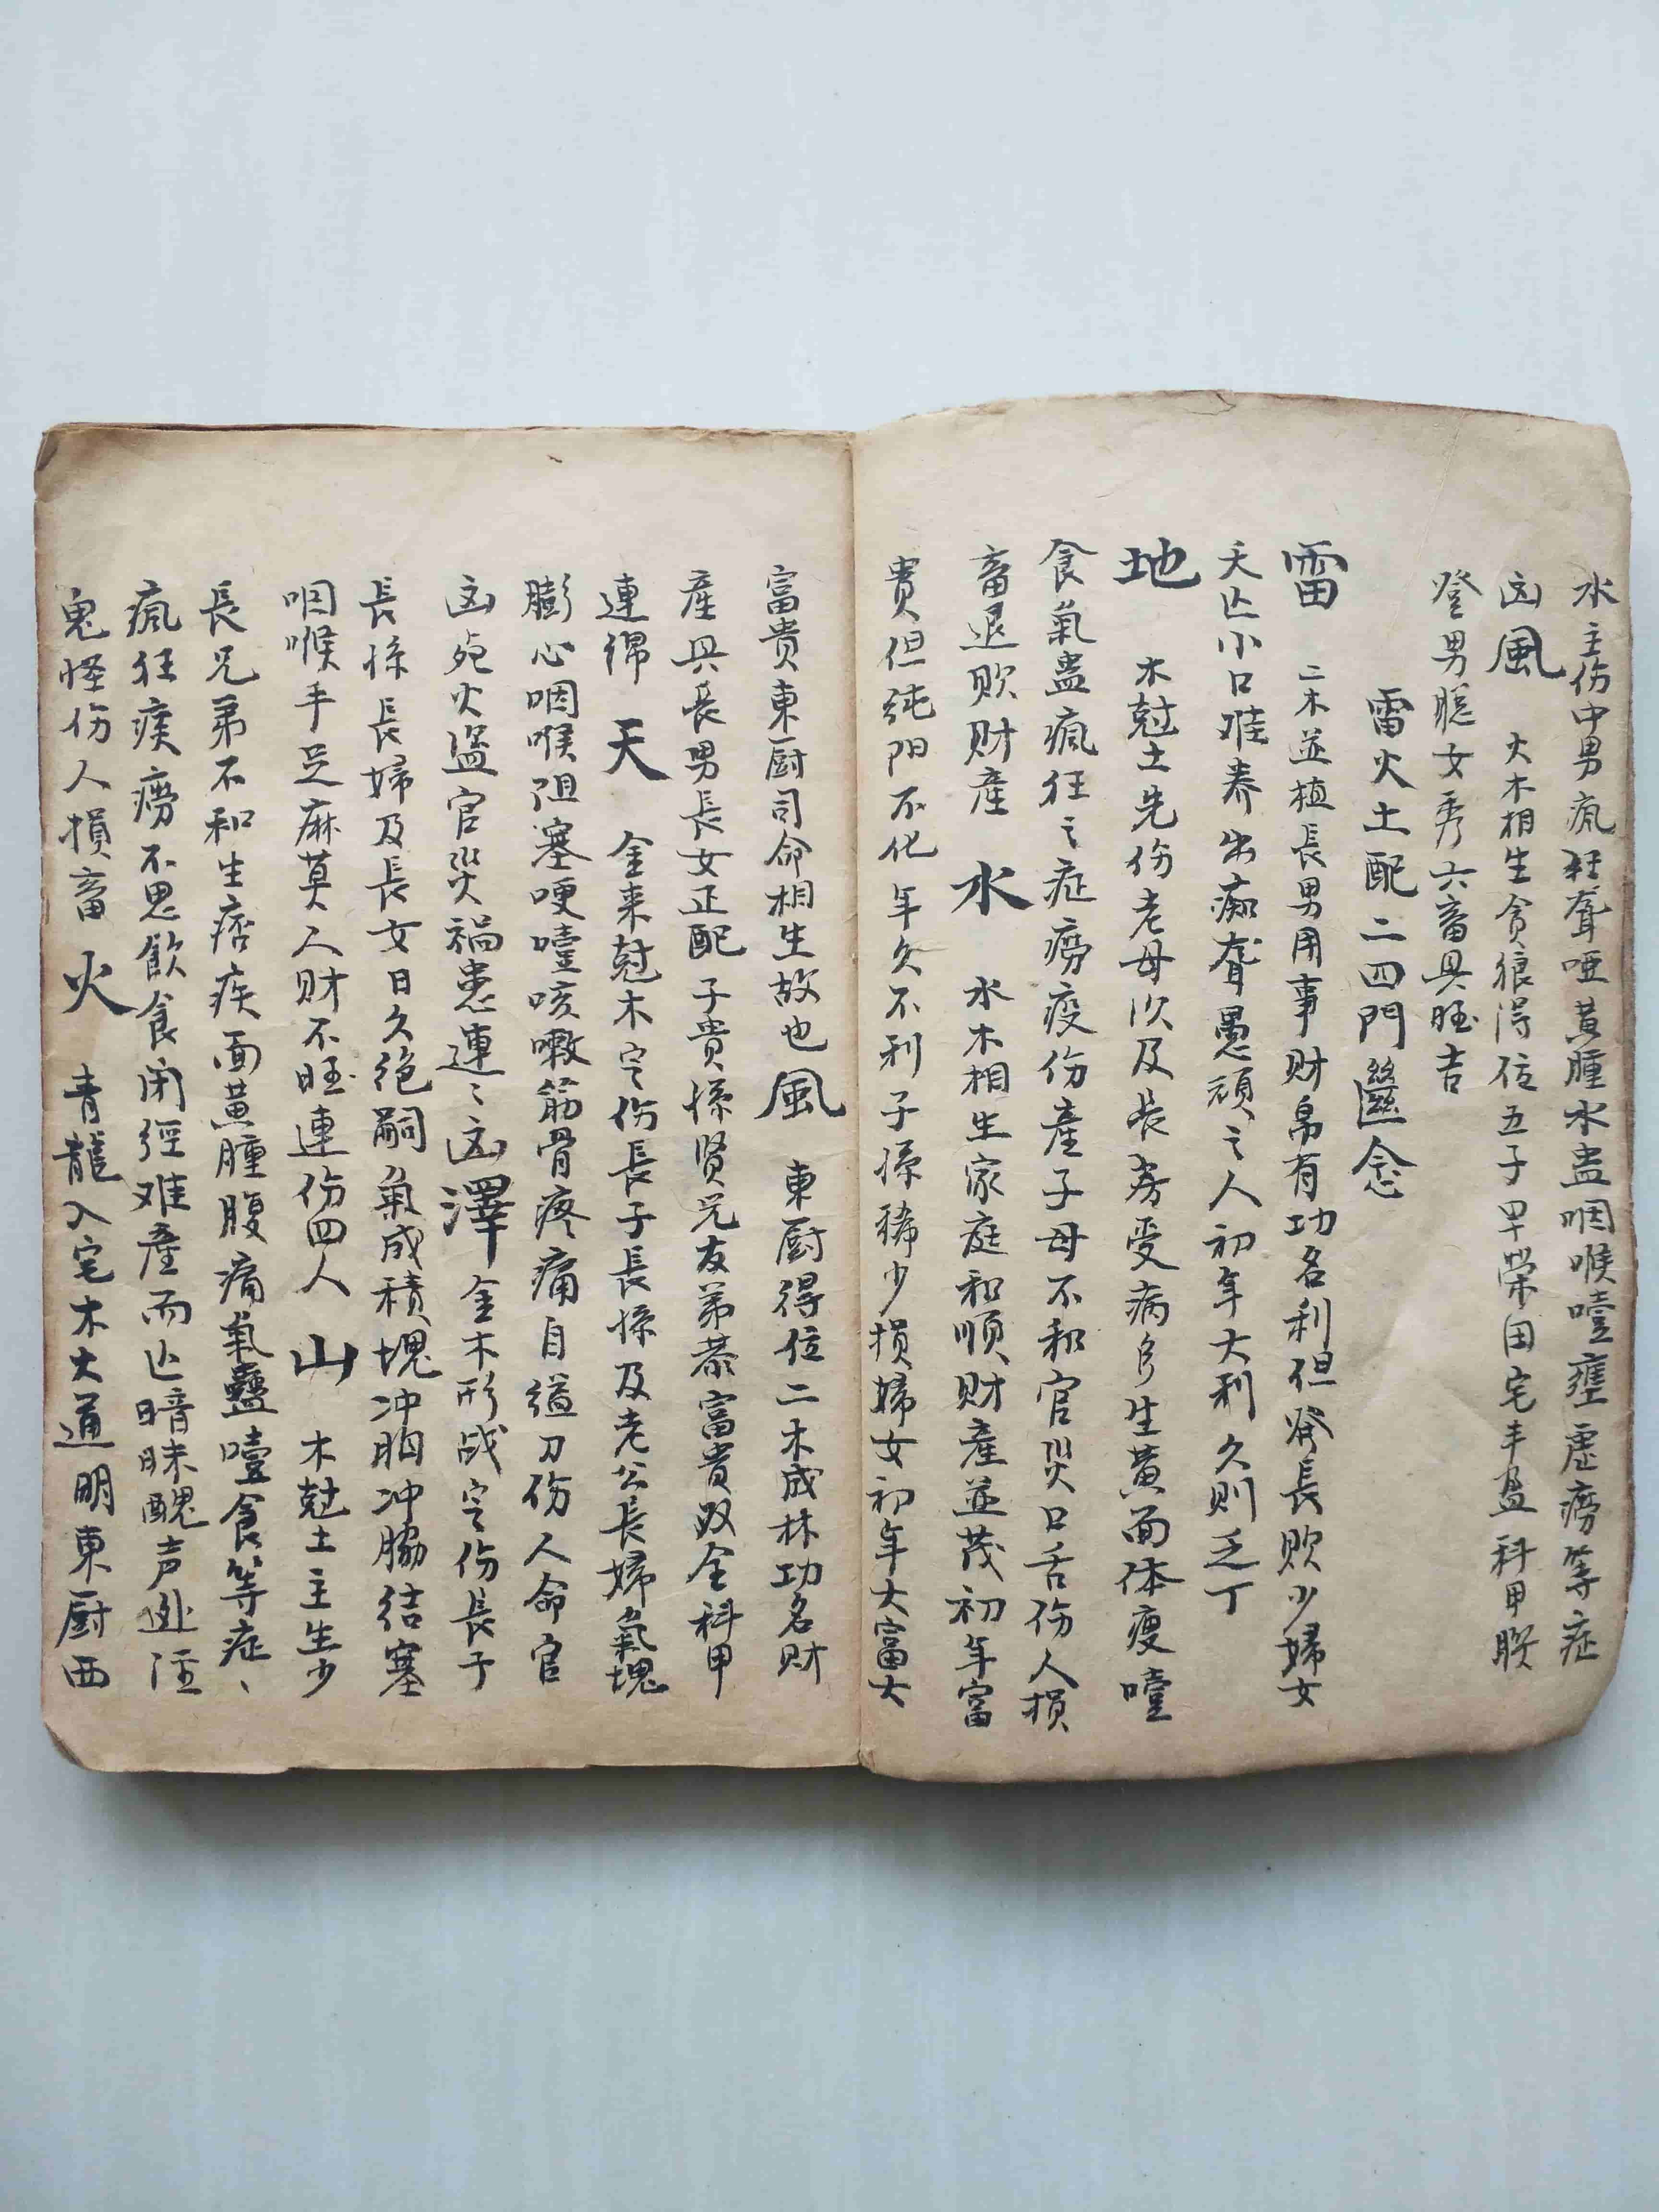 水主伤中男瘋狂聋哑黄腫水蛊咽喉噎癰虚癆等症
凶風 火木相生贪狼得位五子早荣田宅丰盈科甲联
登男聪女秀六畜興旺吉
雷火土配二四門
雷 二木並植長男用事财帛有功名利但發長败少婦女
夭亡小口难养出痴聋愚頑之人初年大利久则乏丁
地 木尅土先伤老母次及長房受病多生黄面体瘦噎
食氣蛊瘋狂之症癆疫伤產子母不和官災口舌伤人損
畜退败财產 水 水木相生家庭和順财產並茂初年富
貴但纯阳不化年久不利子孫稀少損婦女初年大富大
富贵東厨司命相生故也風 東厨得位二木成林功名财
產興長男長女正配子貴孫贤兄友弟恭富貴双全科甲
連綿 天 金来尅木定伤長子長孫及老公長婦氣塊
膨心咽喉阻塞哽噎咳嗽筋骨疼痛自縊刀伤人命官
凶死火盗官災禍患連々凶澤 金木形战定伤長子
長孫長婦及長女日久绝嗣氣成積塊冲胸冲脇结塞
咽喉手足麻莫人财不旺連伤四人 山 木尅土主生少
長兄弟不和生痞疾面黄腫腹痛氣蠱噎食等症、
瘋狂痰癆不思飲食闭經难產而亡暗昧醜声邪淫
鬼怪伤人損畜 火 青龍入宅木火通明東厨西